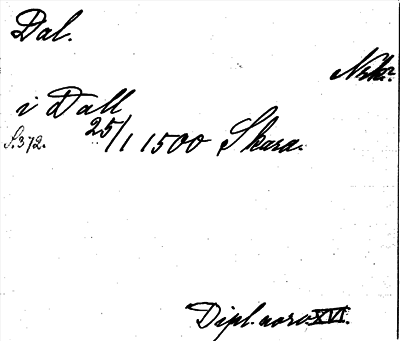 Dal.
Nsk?
i Dall
25/1 1500 Skara.
S. 372.
Dipl. norv. XVI.